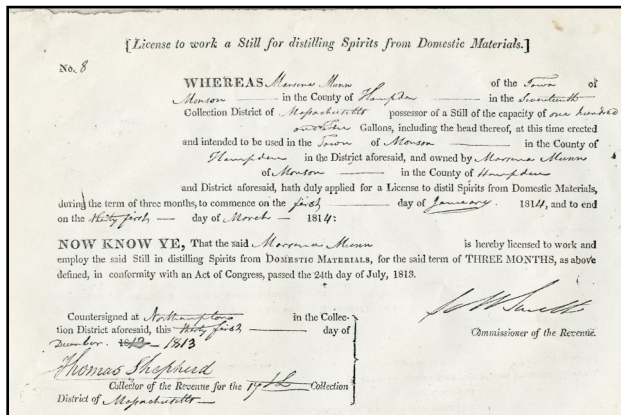 [License to work a Still for distilling Spirits from Domestic Materials.]
No. 8
WHEREAS Marsena Munn of the Town of
Monson in the County of Hampden in the Seventeenth
Collection District of Massachusetts possessor of a Still of the capacity of one hundred
Gallons, including the head thereof, at this time erected
and intended to be used in the Town of Monson in the County of
Hampden in the District aforesaid, and owned by Marsena Munn
of Monson in the County of Hampden
and District aforesaid, hath duly applied for a License to distil Spirits from Domestic Materials,
during the term of three months, to commence on the first day of January 1814, and to end
on the thirty first day of March 1814:
NOW KNOW YE, That the said Marsena Munn is hereby licensed to work and
employ the said Still in distilling Spirits from DOMESTIC MATERIALS, for the said term of THREE MONTHS, as above
defined, in conformity with an Act of Congress, passed the 24th day of July, 1813.
Commissioner of the Revenue.
Countersigned at Northampton in the Collec-
tion District aforesaid, this thirty first day of
December 1813
Thomas Shepherd
Collector of the Revenue for the 17th Collection
District of Massachusetts